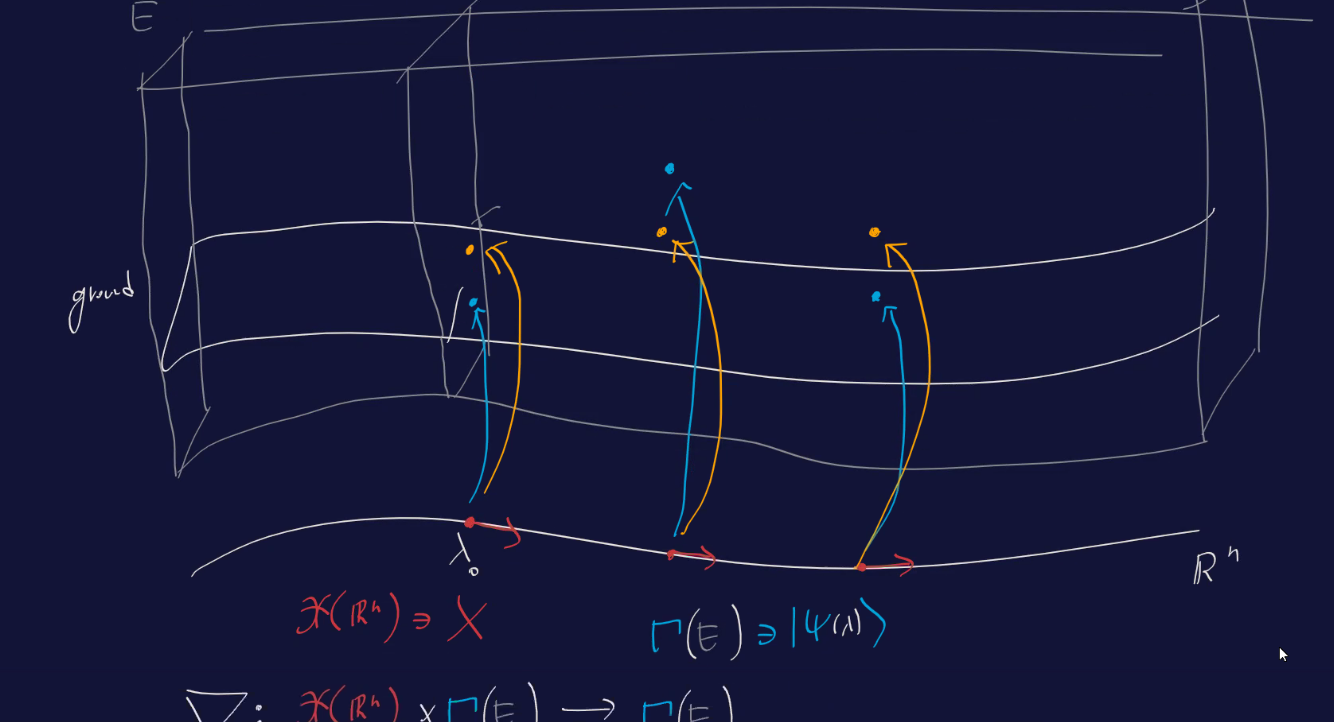 E
ground
λ₀
ℝⁿ
𝔛(ℝⁿ) ∋ X
Γ(E) ∋ |Ψ(λ)⟩
∇ : 𝔛(ℝⁿ) × Γ(E) ⟶ Γ(E)